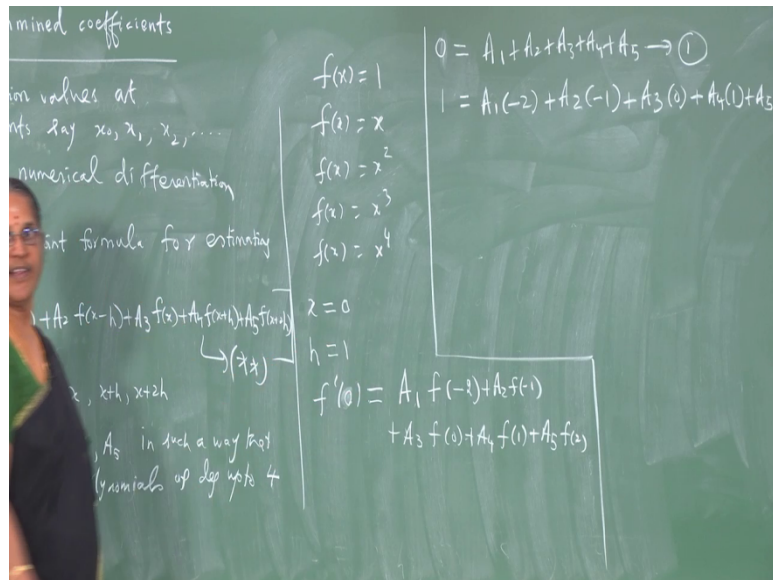 mined coefficients
on values at
nts say x₀, x₁, x₂, ....
numerical differentiation
int formula for estimating
) + A₂ f(x-h) + A₃ f(x) + A₄ f(x+h) + A₅ f(x+2h)
↳ (**)
x, x+h, x+2h
, A₅ in such a way that
lynomials of deg upto 4
f(x) = 1
f(x) = x
f(x) = x²
f(x) = x³
f(x) = x⁴
x = 0
h = 1
f'(0) = A₁ f(-2) + A₂ f(-1)
+ A₃ f(0) + A₄ f(1) + A₅ f(2)
0 = A₁ + A₂ + A₃ + A₄ + A₅ → ①
1 = A₁(-2) + A₂(-1) + A₃(0) + A₄(1) + A₅